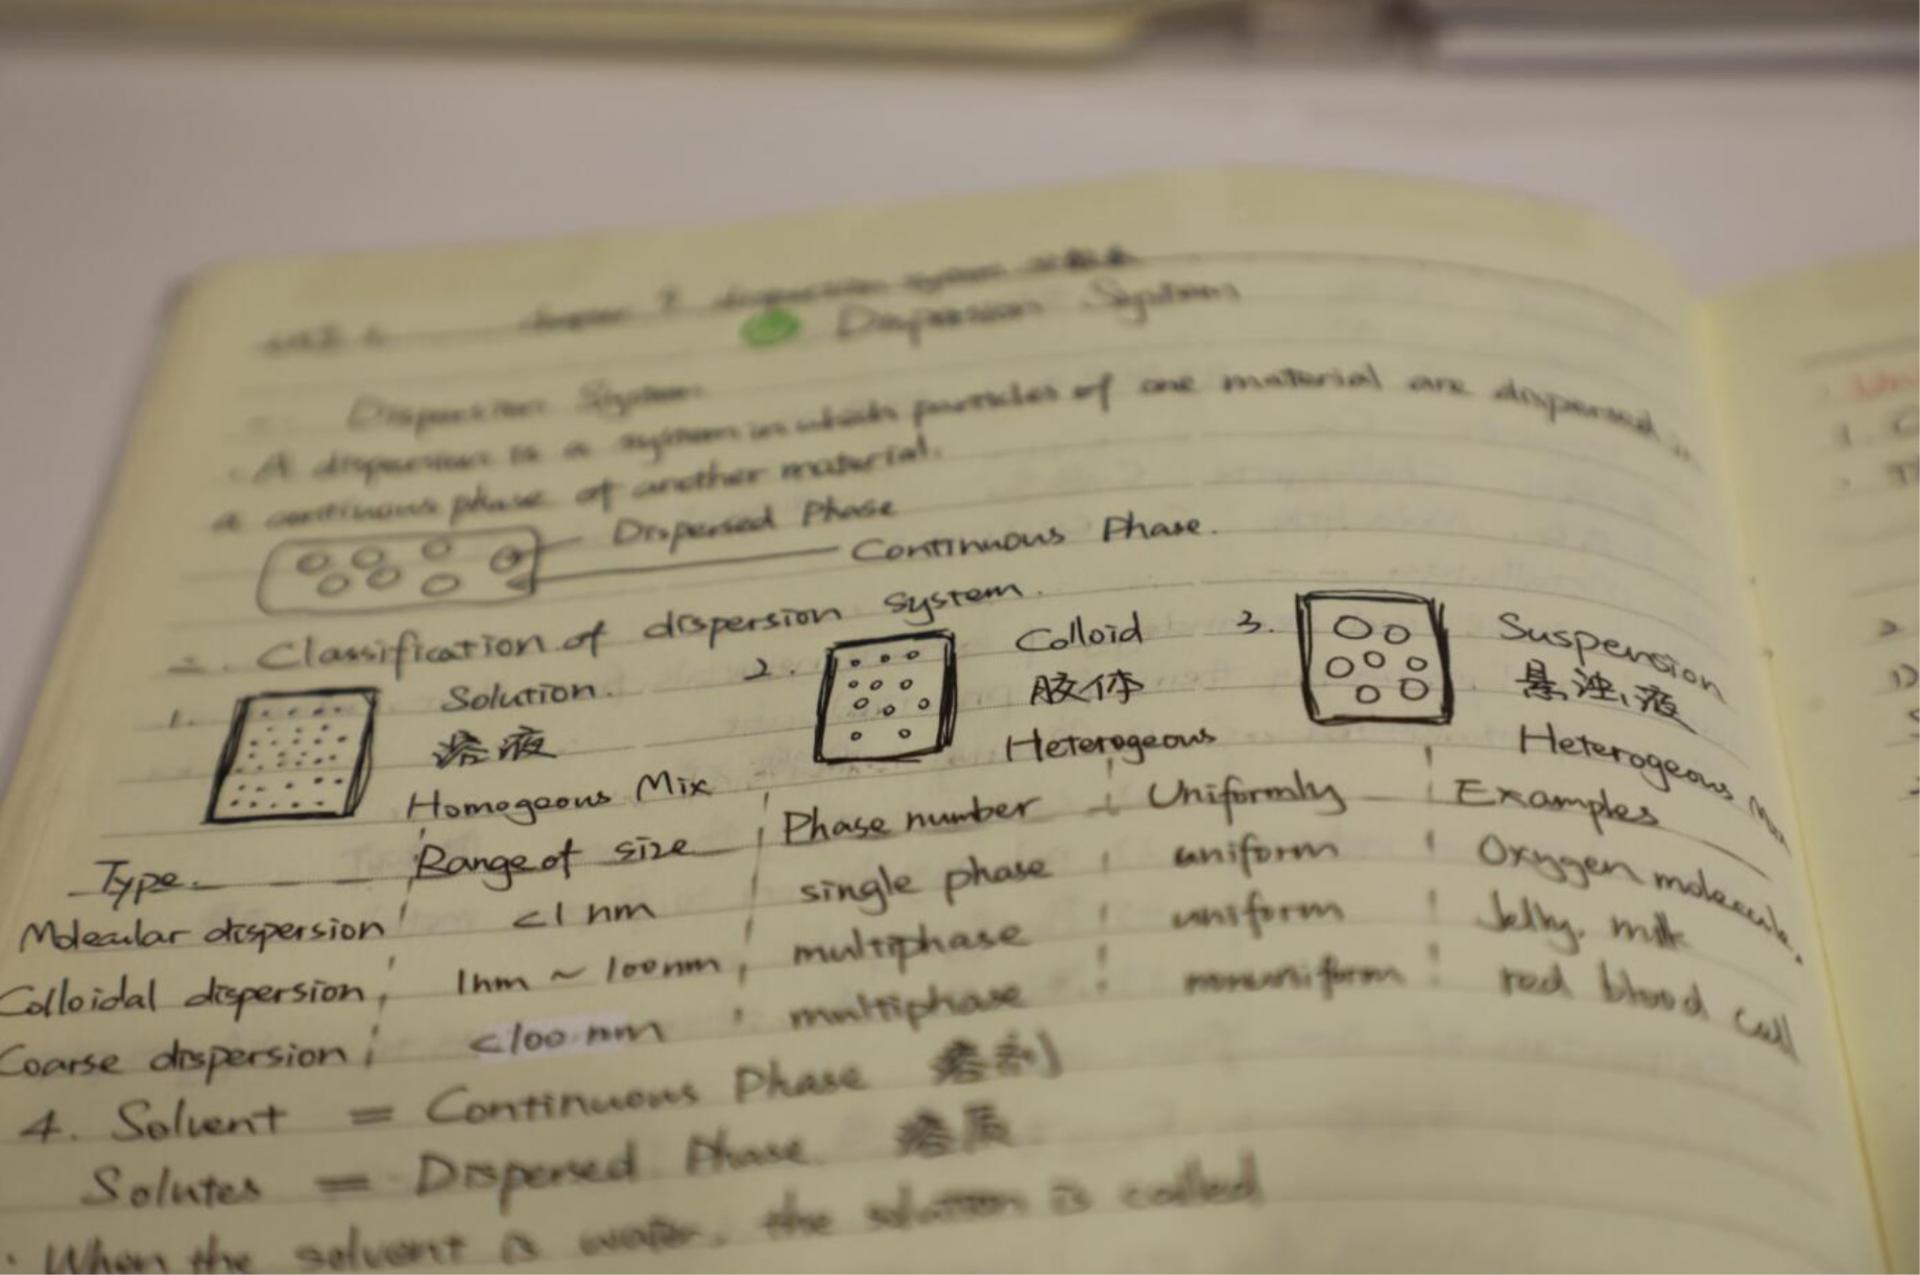 Dispersion System
Dispersion System
· A dispersion is a system in which particles of one material are dispersed in
a continuous phase of another material.
Dispersed Phase
Continuous Phase.
二. Classification of dispersion system.
1. Solution.
溶液
Homogeous Mix
2. Colloid
胶体
Heterogeous
3. Suspension
悬浊液
Heterogeous Mix
Type. Range of size Phase number Uniformly Examples
Molecular dispersion <1 nm single phase uniform Oxygen molecule.
Colloidal dispersion 1nm ~ 100nm multiphase uniform Jelly, milk
Coarse dispersion <100 nm multiphase nonuniform red blood cell
4. Solvent = Continuous Phase 溶剂
Solutes = Dispersed Phase 溶质
· When the solvent is water, the solution is called